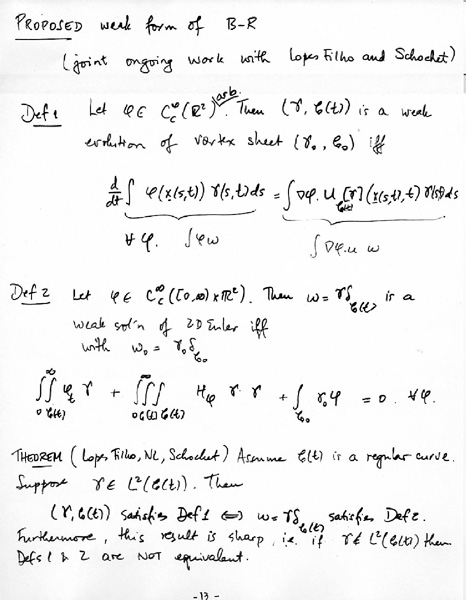 PROPOSED weak form of B-R
(joint ongoing work with Lopes Filho and Schochet)
Def 1 Let φ ∈ C_c^∞(ℝ²) arb. Then (γ, C(t)) is a weak
evolution of vortex sheet (γ₀, C₀) iff
d/dt ∫ φ(x(s,t)) γ(s,t) ds = ∫ ∇φ · U_{C(t)}[γ](x(s,t),t) γ(s,t) ds
∀ φ. ∫ φω ∫ ∇φ.u ω
Def 2 Let φ ∈ C_c^∞([0,∞) × ℝ²). Then ω = γδ_{C(t)} is a
weak sol'n of 2D Euler iff
with ω₀ = γ₀ δ_{C₀}
∫₀^∞ ∫_{C(t)} φ_t γ + ∫₀^∞ ∫_{C(t)} ∫_{C(t)} H_φ γ · γ + ∫_{C₀} γ₀ φ = 0. ∀ φ.
THEOREM (Lopes Filho, NL, Schochet) Assume C(t) is a regular curve.
Suppose γ ∈ L²(C(t)). Then
(γ, C(t)) satisfies Def 1 ⟺ ω = γδ_{C(t)} satisfies Def 2.
Furthermore, this result is sharp, i.e. if γ ∉ L²(C(t)) then
Defs 1 & 2 are NOT equivalent.
- 13 -